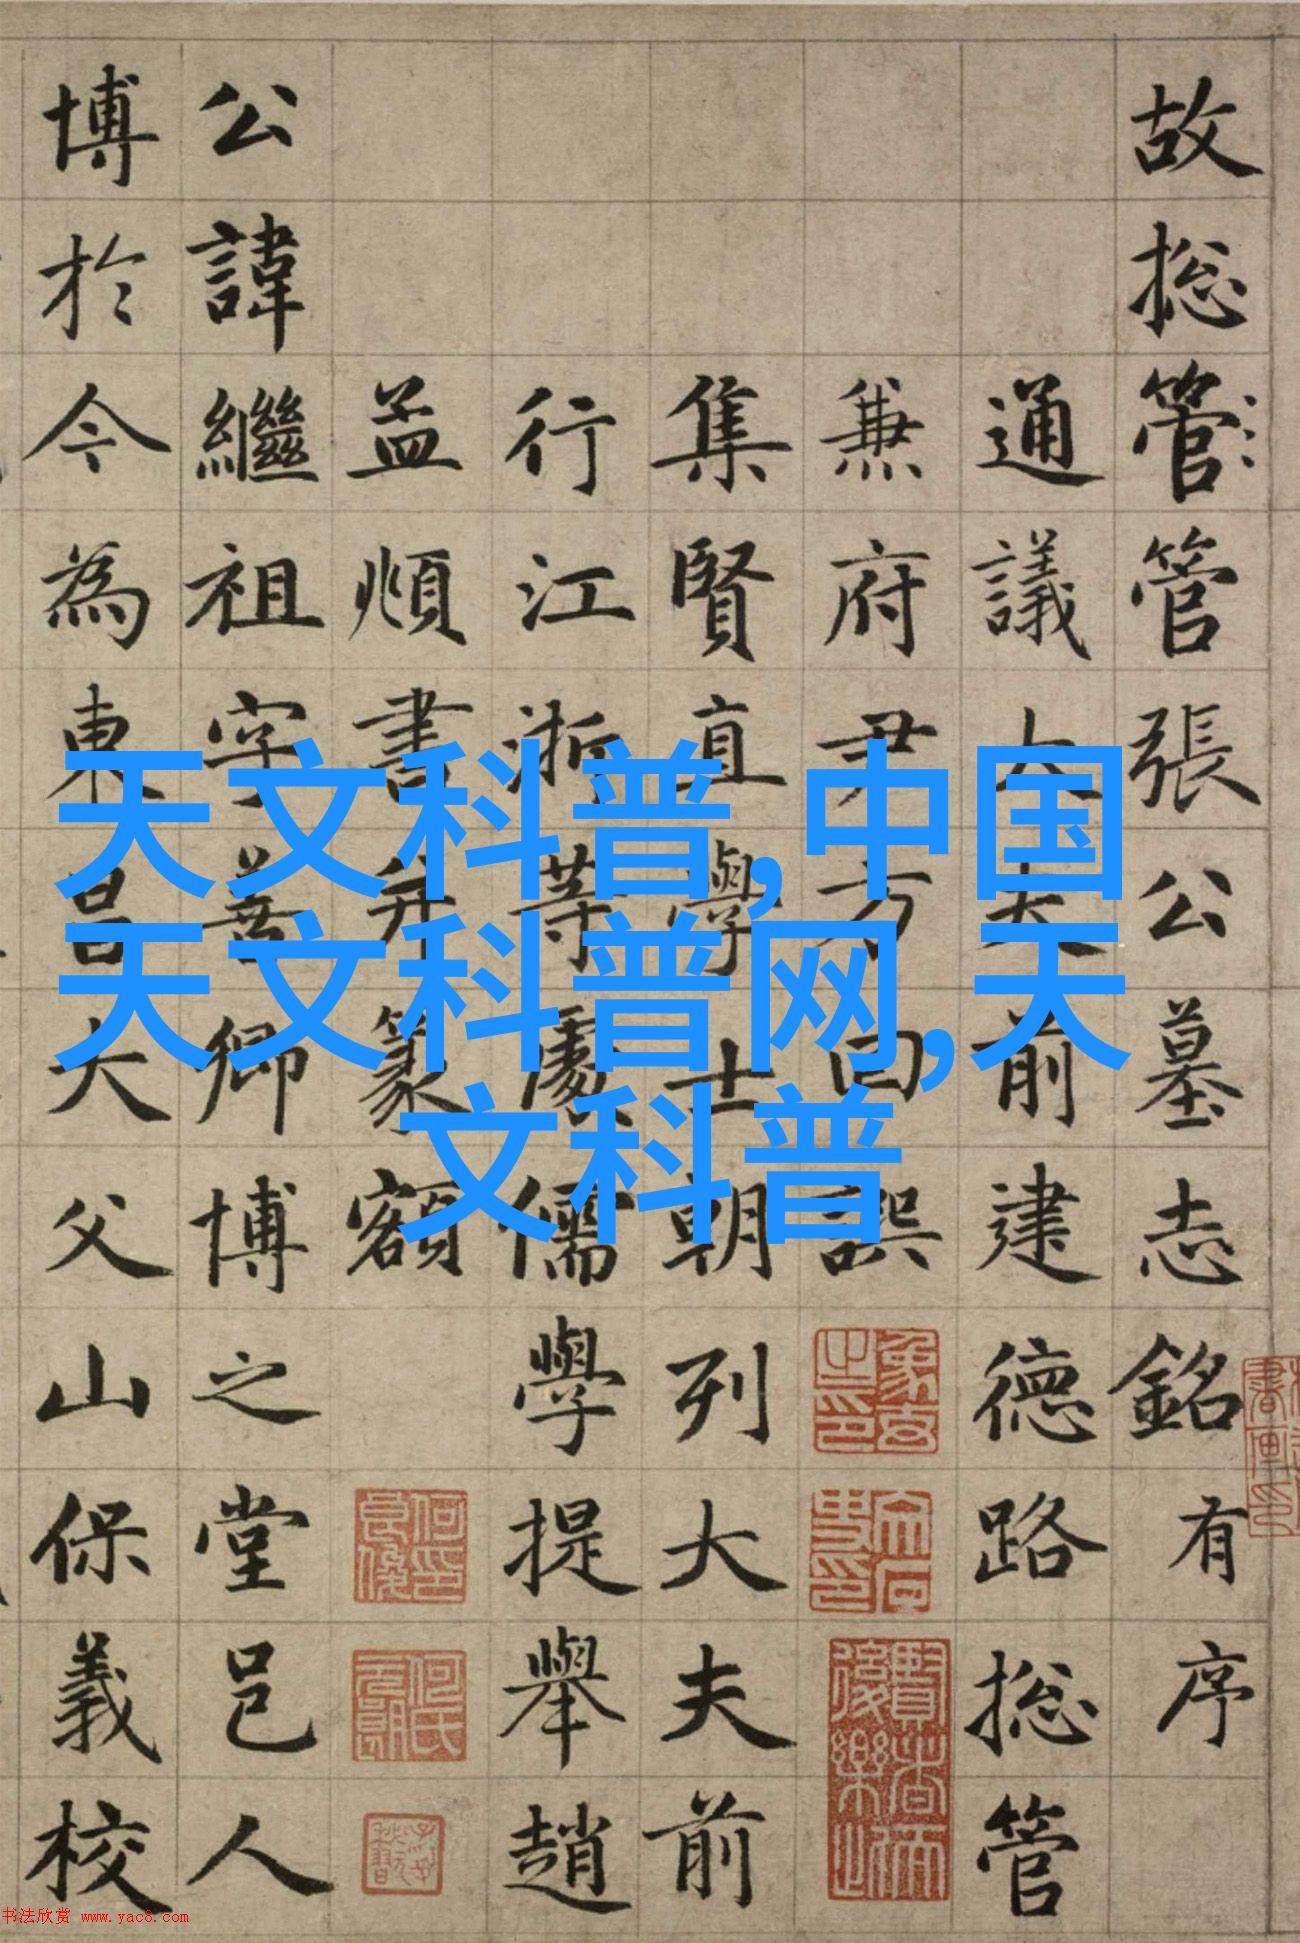 故揔管張公墓志銘有序
通議大夫前建德路揔管
兼府尹方回譔
集賢直學士朝列大夫前
行江浙等處儒學提舉趙
孟頫書并篆額
公諱繼祖字善卿博之堂邑人
博於今為東昌大父山保義校
天文科普,中国
天文科普网,天
文科普
书法欣赏 www.yac8.com